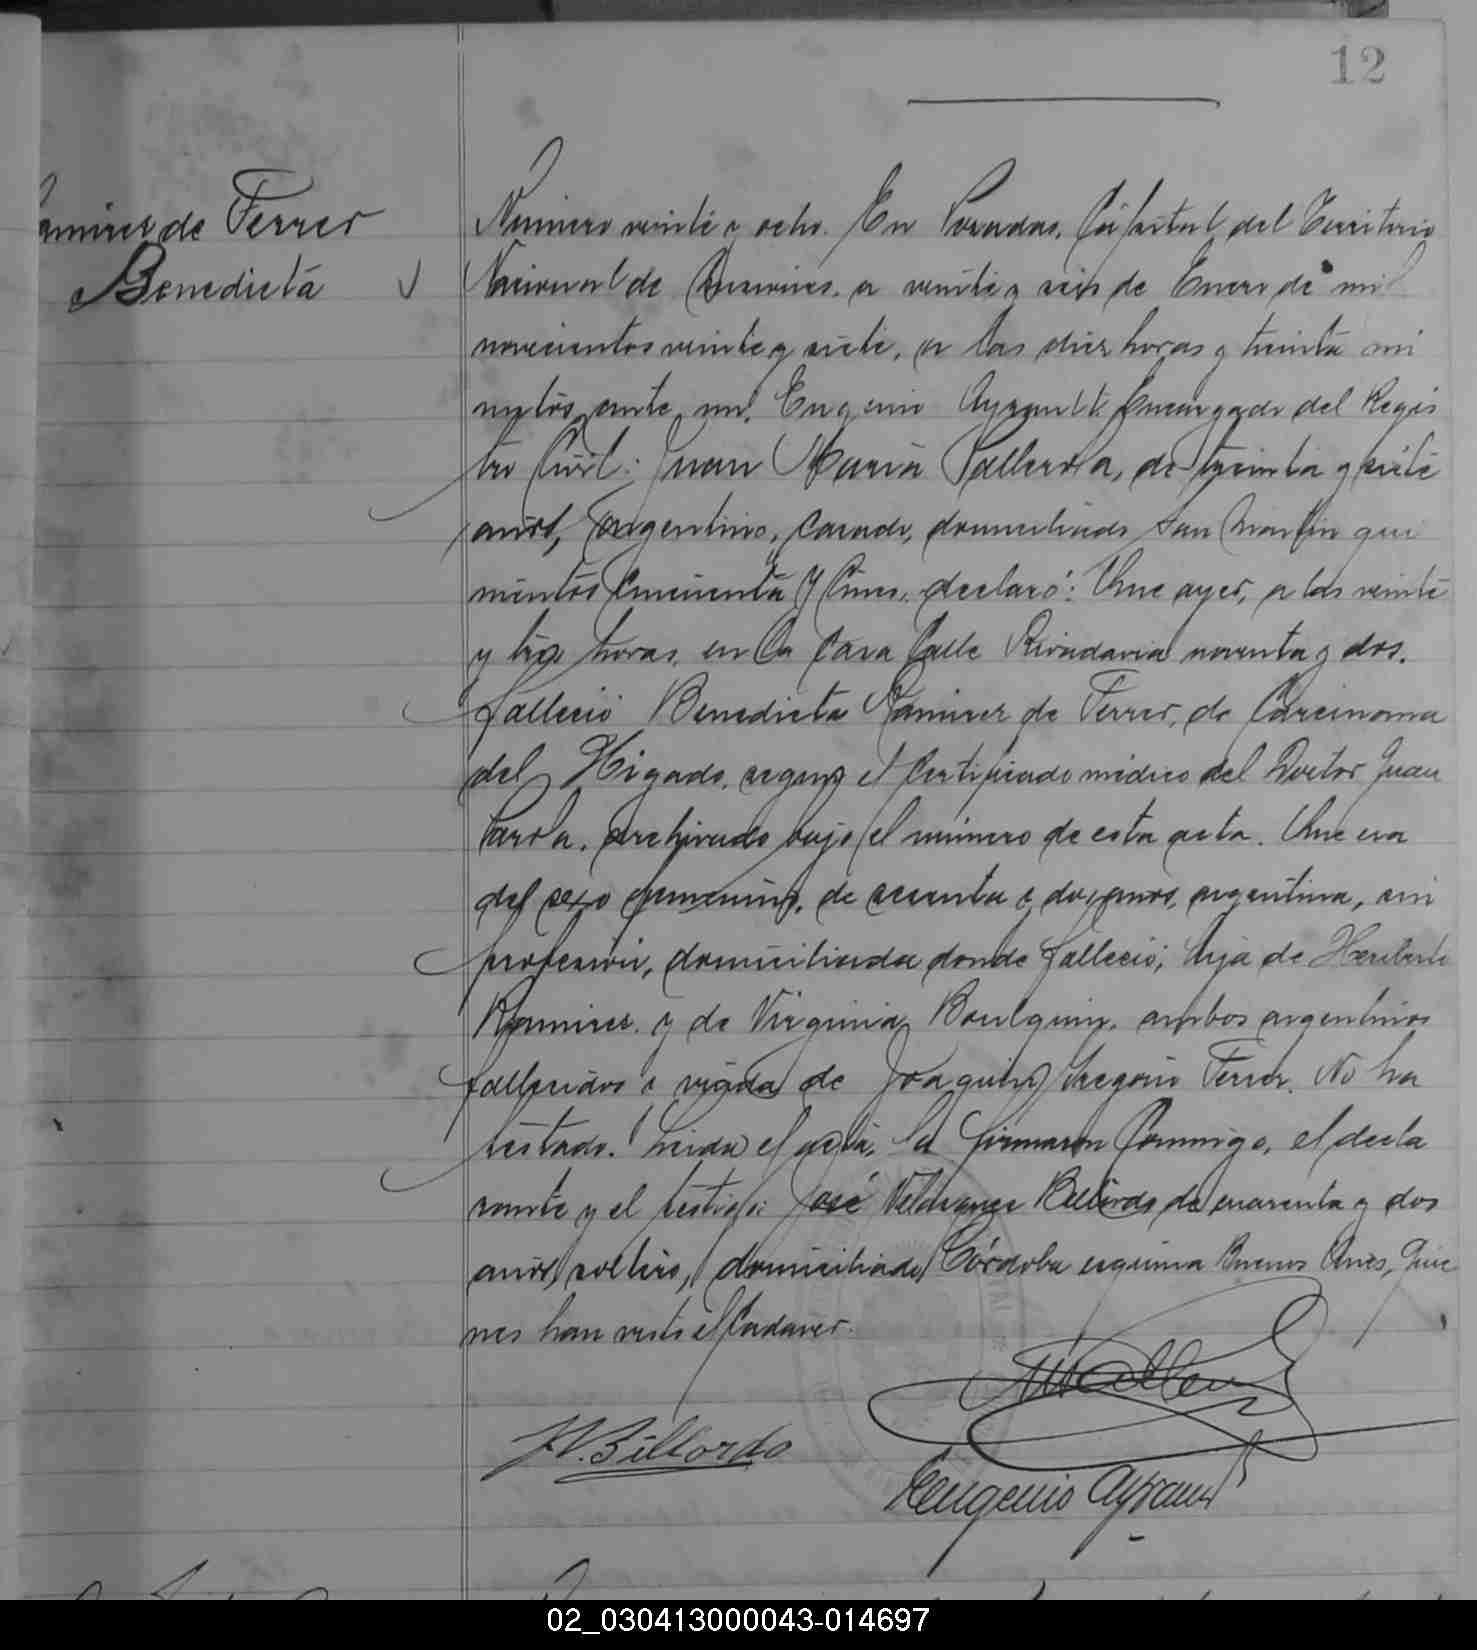 12
Ramirez de Ferrer
Benedicta
Número veinte y ocho. En Posadas, Capital del Territorio
Nacional de Misiones, a veinte y seis de Enero de mil
novecientos veinte y siete, a las diez horas y treinta mi
nutos, ante mi, Eugenio Ayrault Encargado del Regis
tro Civil: Juan María Pallerola, de treinta y siete
años, argentino, casado, domiciliado San Martin qui
nientos cincuenta y cinco, declaró: Que ayer, a las veinte
y tres horas, en la casa calle Rivadavia noventa y dos,
falleció Benedicta Ramirez de Ferrer, de Carcinoma
del Higado, segun el certificado médico del Doctor Juan
archivado bajo el número de esta acta. Que era
del sexo femenino, de sesenta y dos años, argentina, sin
profesión, domiciliada donde falleció; hija de Heriberto
Ramirez y de Virginia ambos argentinos
fallecidos y viuda de Joaquin Gregorio Ferrer. No ha
testado. Leida el acta, la firmaron conmigo, el decla
rante y el testigo: José Velazquez Billordo de cuarenta y dos
años, soltero, domiciliado Córdoba esquina Buenos Aires, quie
nes han visto el cadaver.
J.V. Billordo
Eugenio Ayrault
02_030413000043-014697